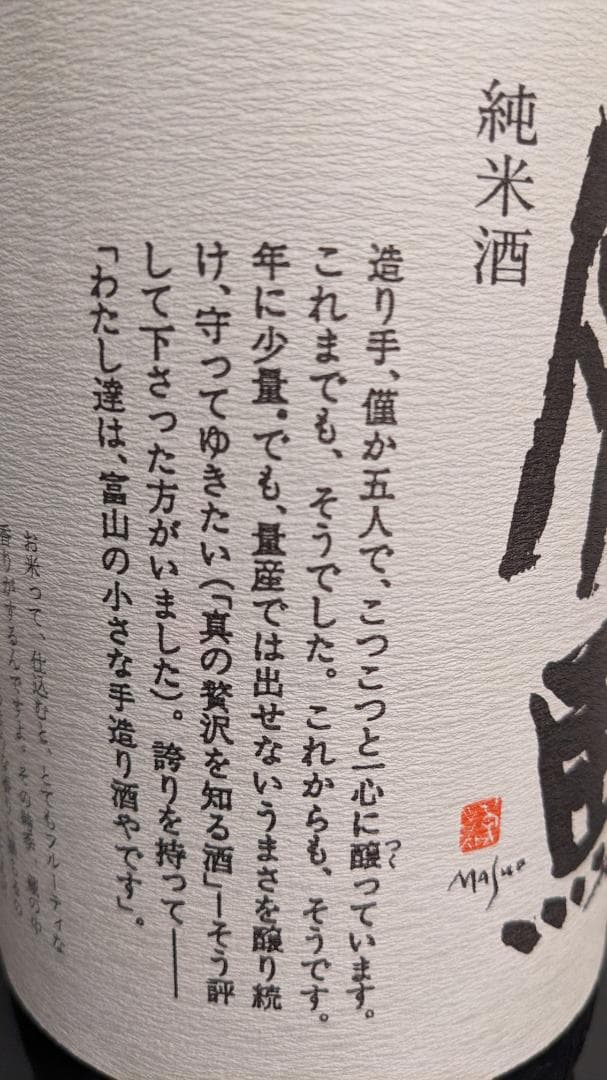 純米酒
造り手、僅か五人で、こつこつと一心に醸っています。
つく
これまでも、そうでした。これからも、そうです。
年に少量。でも、量産では出せないうまさを醸り続
け、守ってゆきたい(「真の贅沢を知る酒」―そう評
して下さった方がいました)。誇りを持って――
「わたし達は、富山の小さな手造り酒やです」。
お米って、仕込むと、とてもフルーティな
香りがするんですよ。その時季、蔵の中
MASUO